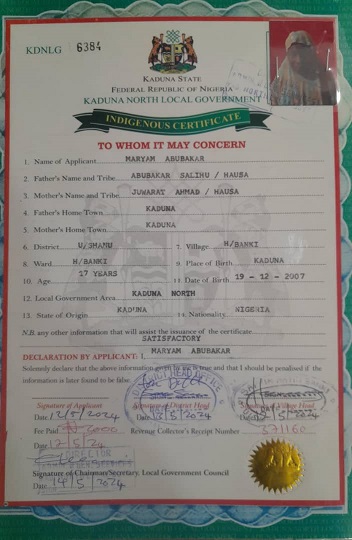 KDNLG 6384
KADUNA STATE
FEDERAL REPUBLIC OF NIGERIA
KADUNA NORTH LOCAL GOVERNMENT
INDIGENOUS CERTIFICATE
TO WHOM IT MAY CONCERN
1. Name of Applicant MARYAM ABUBAKAR
2. Father's Name and Tribe ABUBAKAR SALIHU / HAUSA
3. Mother's Name and Tribe JUWARAT AHMAD / HAUSA
4. Father's Home Town KADUNA
5. Mother's Home Town KADUNA
6. District U/SHANU 7. Village H/BANKI
8. Ward H/BANKI 9. Place of Birth KADUNA
10. Age 17 YEARS 11 Date of Birth 19 - 12 - 2007
12. Local Government Area KADUNA NORTH
13. State of Origin KADUNA 14. Nationality NIGERIA
N.B. any other information that will assist the issuance of the certificate
SATISFACTORY
DECLARATION BY APPLICANT: I, MARYAM ABUBAKAR
Solemnly declare that the above information given by me is true and that I should be penalised if the
information is later found to be false.
Signature of Applicant Signature of District Head Signature of Village Head
Date 12/5/2024 13/5/2024 /5/2024
Fee Paid Revenue Collector's Receipt Number 371160
Date 12/5/24
DIRECTOR
Signature of Chairman/Secretary, Local Government Council
Date 14/5/2024